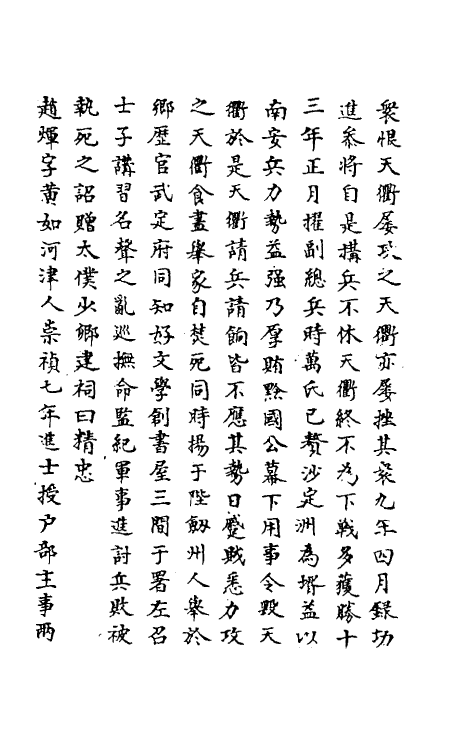 衆恨天衢屡攻之天衢亦屡挫其衆九年四月錄功
進叅將自是搆兵不休天衢終不為下戰多獲勝十
三年正月擢副總兵時萬氏已贅沙定洲為壻益以
南安兵力勢益强乃厚賄黔國公幕下用事令毀天
衢於是天衢請兵請餉皆不應其勢日蹙賊悉力攻
之天衢食盡舉家自焚死同時揚于陛劔州人舉於
鄉歷官武定府同知好文學創書屋三間于署左召
士子講習名聲之亂巡撫命監紀軍事進討兵敗被
執死之詔贈太僕少卿建祠曰精忠
趙𤾉字黄如河津人崇禎七年進士授户部主事兩